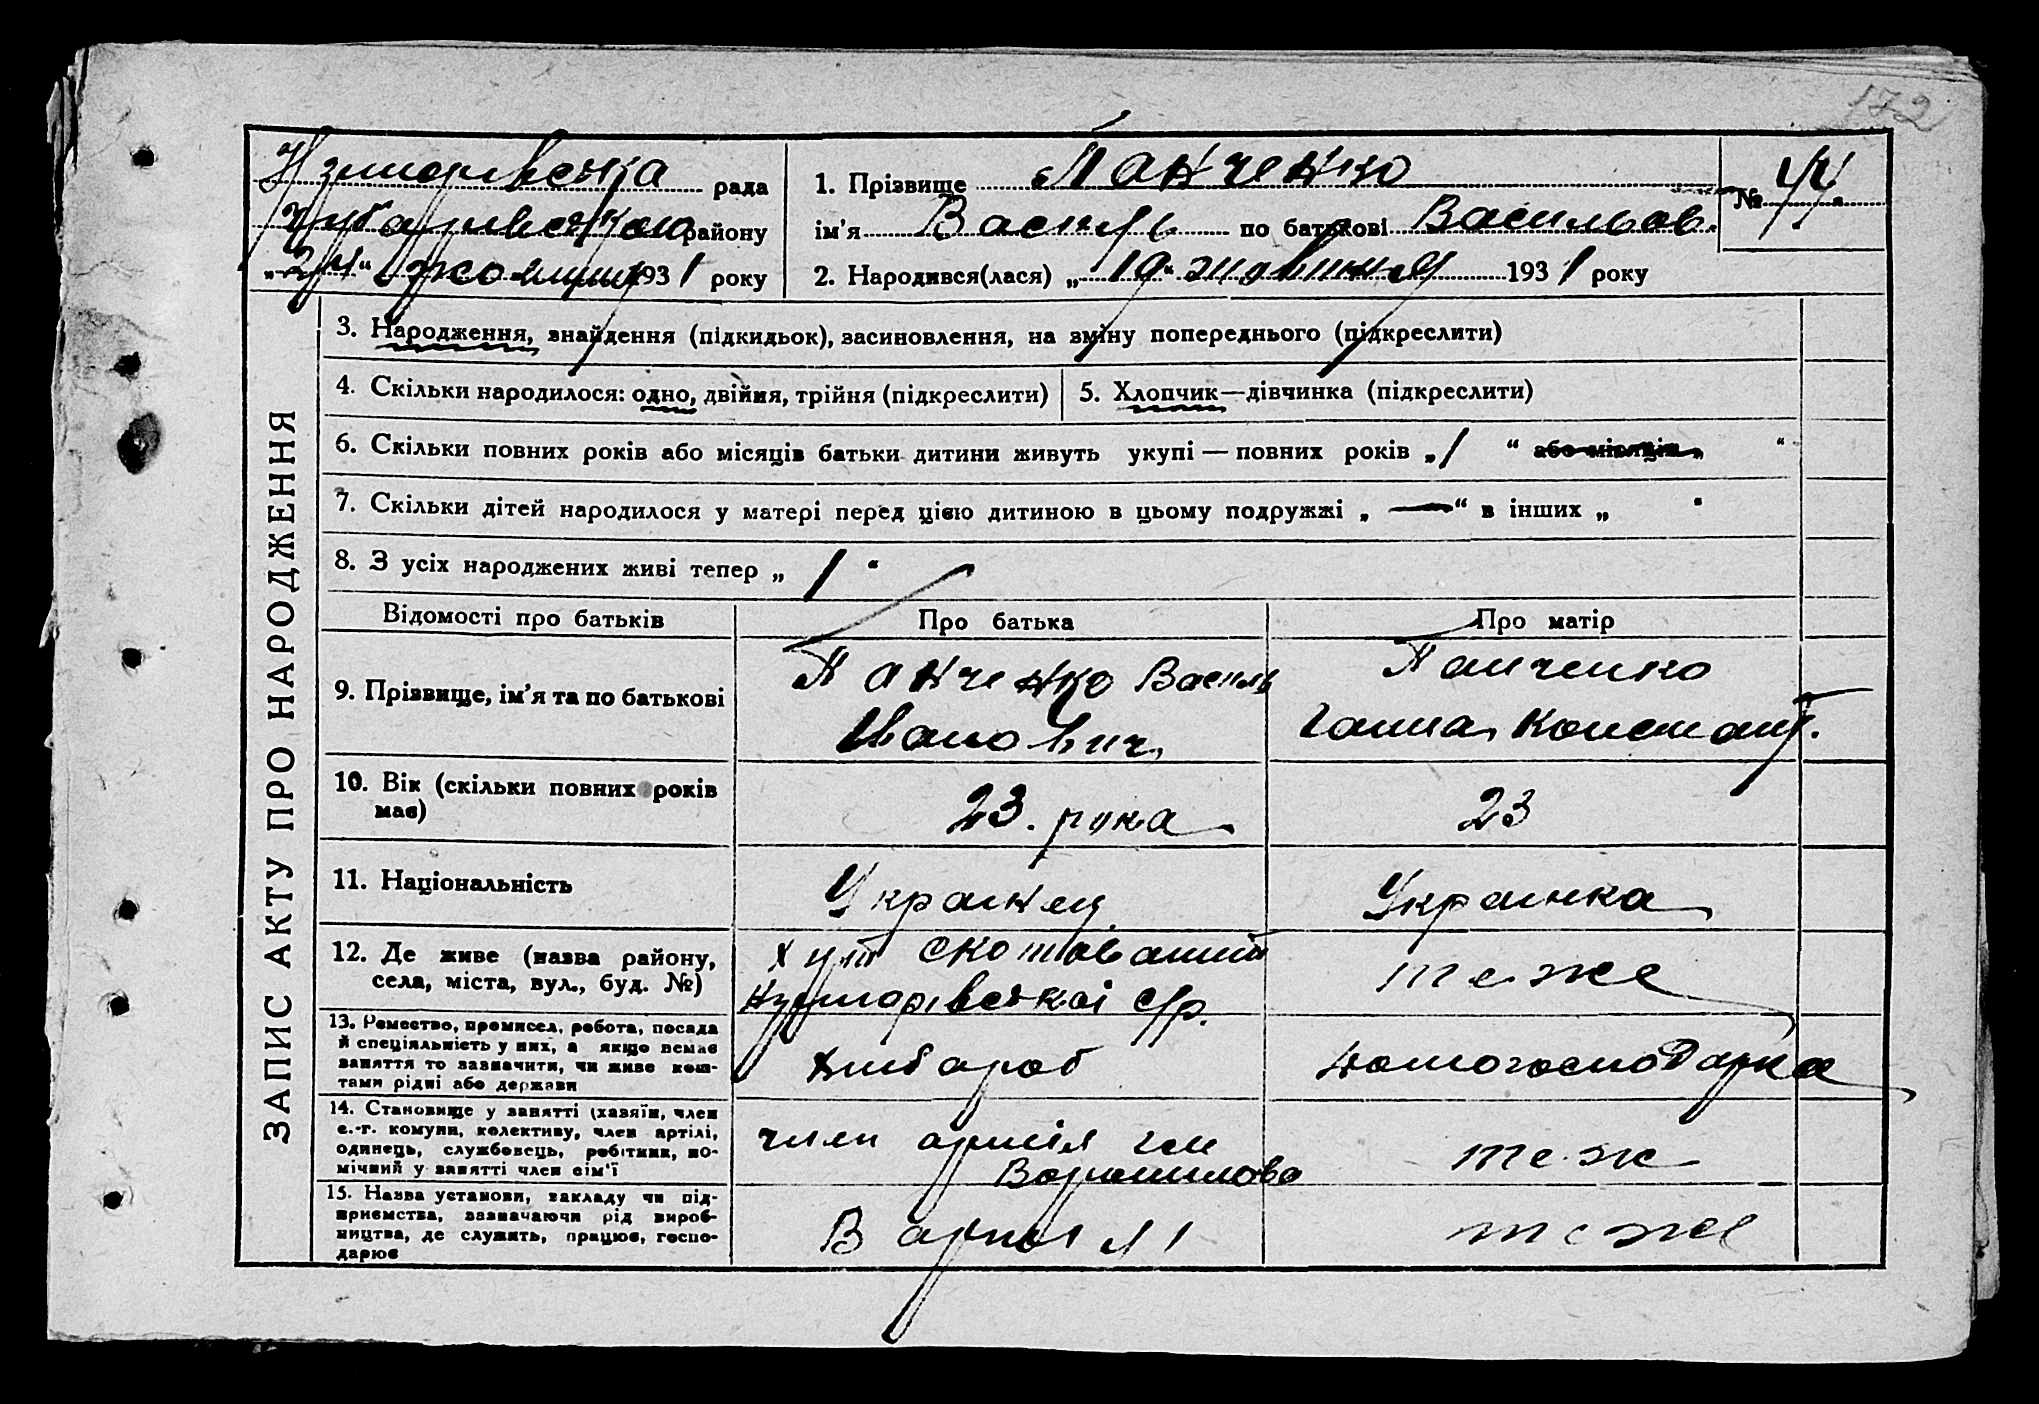 172
рада
1. Прізвище Панченко
№ 44.
Чубарівського району
ім'я Василь по батькові Васильов.
„24“ жовтня 1931 року
2. Народився(лася) „19“ жовтня 1931 року
ЗАПИС АКТУ ПРО НАРОДЖЕННЯ
3. Народження, знайдення (підкидьок), засиновлення, на зміну попереднього (підкреслити)
4. Скільки народилося: одно, двійня, трійня (підкреслити)
5. Хлопчик—дівчинка (підкреслити)
6. Скільки повних років або місяців батьки дитини живуть укупі — повних років „1“ або місяців „ “
7. Скільки дітей народилося у матері перед цією дитиною в цьому подружжі „—“ в інших „ “
8. З усіх народжених живі тепер „1“
Відомості про батьків
Про батька
Про матір
9. Прізвище, ім'я та по батькові
Панченко Василь
Іванович
Панченко
Ганна Констант.
10. Вік (скільки повних років
має)
23. рока
23
11. Національність
Украінец
Украінка
12. Де живе (назва району,
села, міста, вул., буд. №)
хут
с/р.
теже
13. Ремество, промисел, робота, посада
й спеціяльність у них, а якщо немає
заняття то зазначити, чи живе кош-
тами рідні або держави
хлібароб
домогосподарка
14. Становище у занятті (хазяїн, член
с.-г. комуни, колективу, член артілі,
одинець, службовець, робітник, по-
мічний у занятті член сім'ї
член артіл ім
Ворошилова
теж
15. Назва установи, закладу чи під-
приємства, зазначаючи рід вироб-
ництва, де служить, працює, госпо-
дарює
В артілі
теже